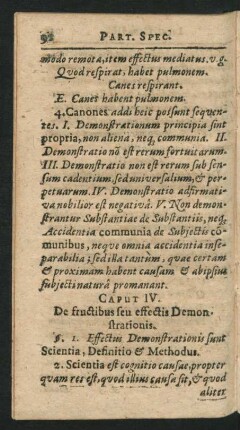 92 PART. SPEC.
modo remota, item effectus mediatus. v. g.
Quod respirat, habet pulmonem.
Canes respirant.
E. Canes habent pulmonem.
4. Canones addi heic possunt sequen-
tes. I. Demonstrationum principia sint
propria, non aliena, neq, communia. II.
Demonstratio nō est rerum fortuitarum.
III. Demonstratio non est rerum sub sen-
sum cadentium, sed universalium, & per-
petuarum. IV. Demonstratio adfirmati-
va nobilior est negativâ. V. Non demon-
strantur Substantiae de Substantiis, neq,
Accidentia communia de Subjectis cō-
munibus, neque omnia accidentia inse-
parabilia; sed illa tantùm, quae certam
& proximam habent causam & ab ipsius
subjecti naturâ promanant.
CAPUT IV.
De fructibus seu effectis Demon-
strationis.
§. 1. Effectus Demonstrationis sunt
Scientia, Definitio & Methodus.
2. Scientia est cognitio causae, propter
quam res est, quod illius causa sit, & quod
aliter